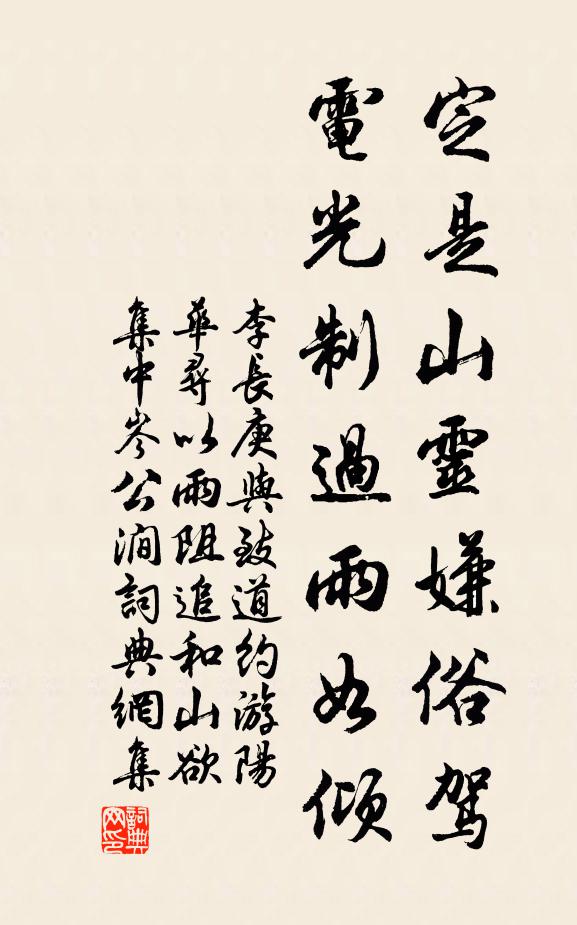 定是山靈嫌俗駕
電光制過雨如傾
李長庚與致道約游陽
華尋以雨阻追和山欲
集中岑公澗詞典網集
詞典
网印